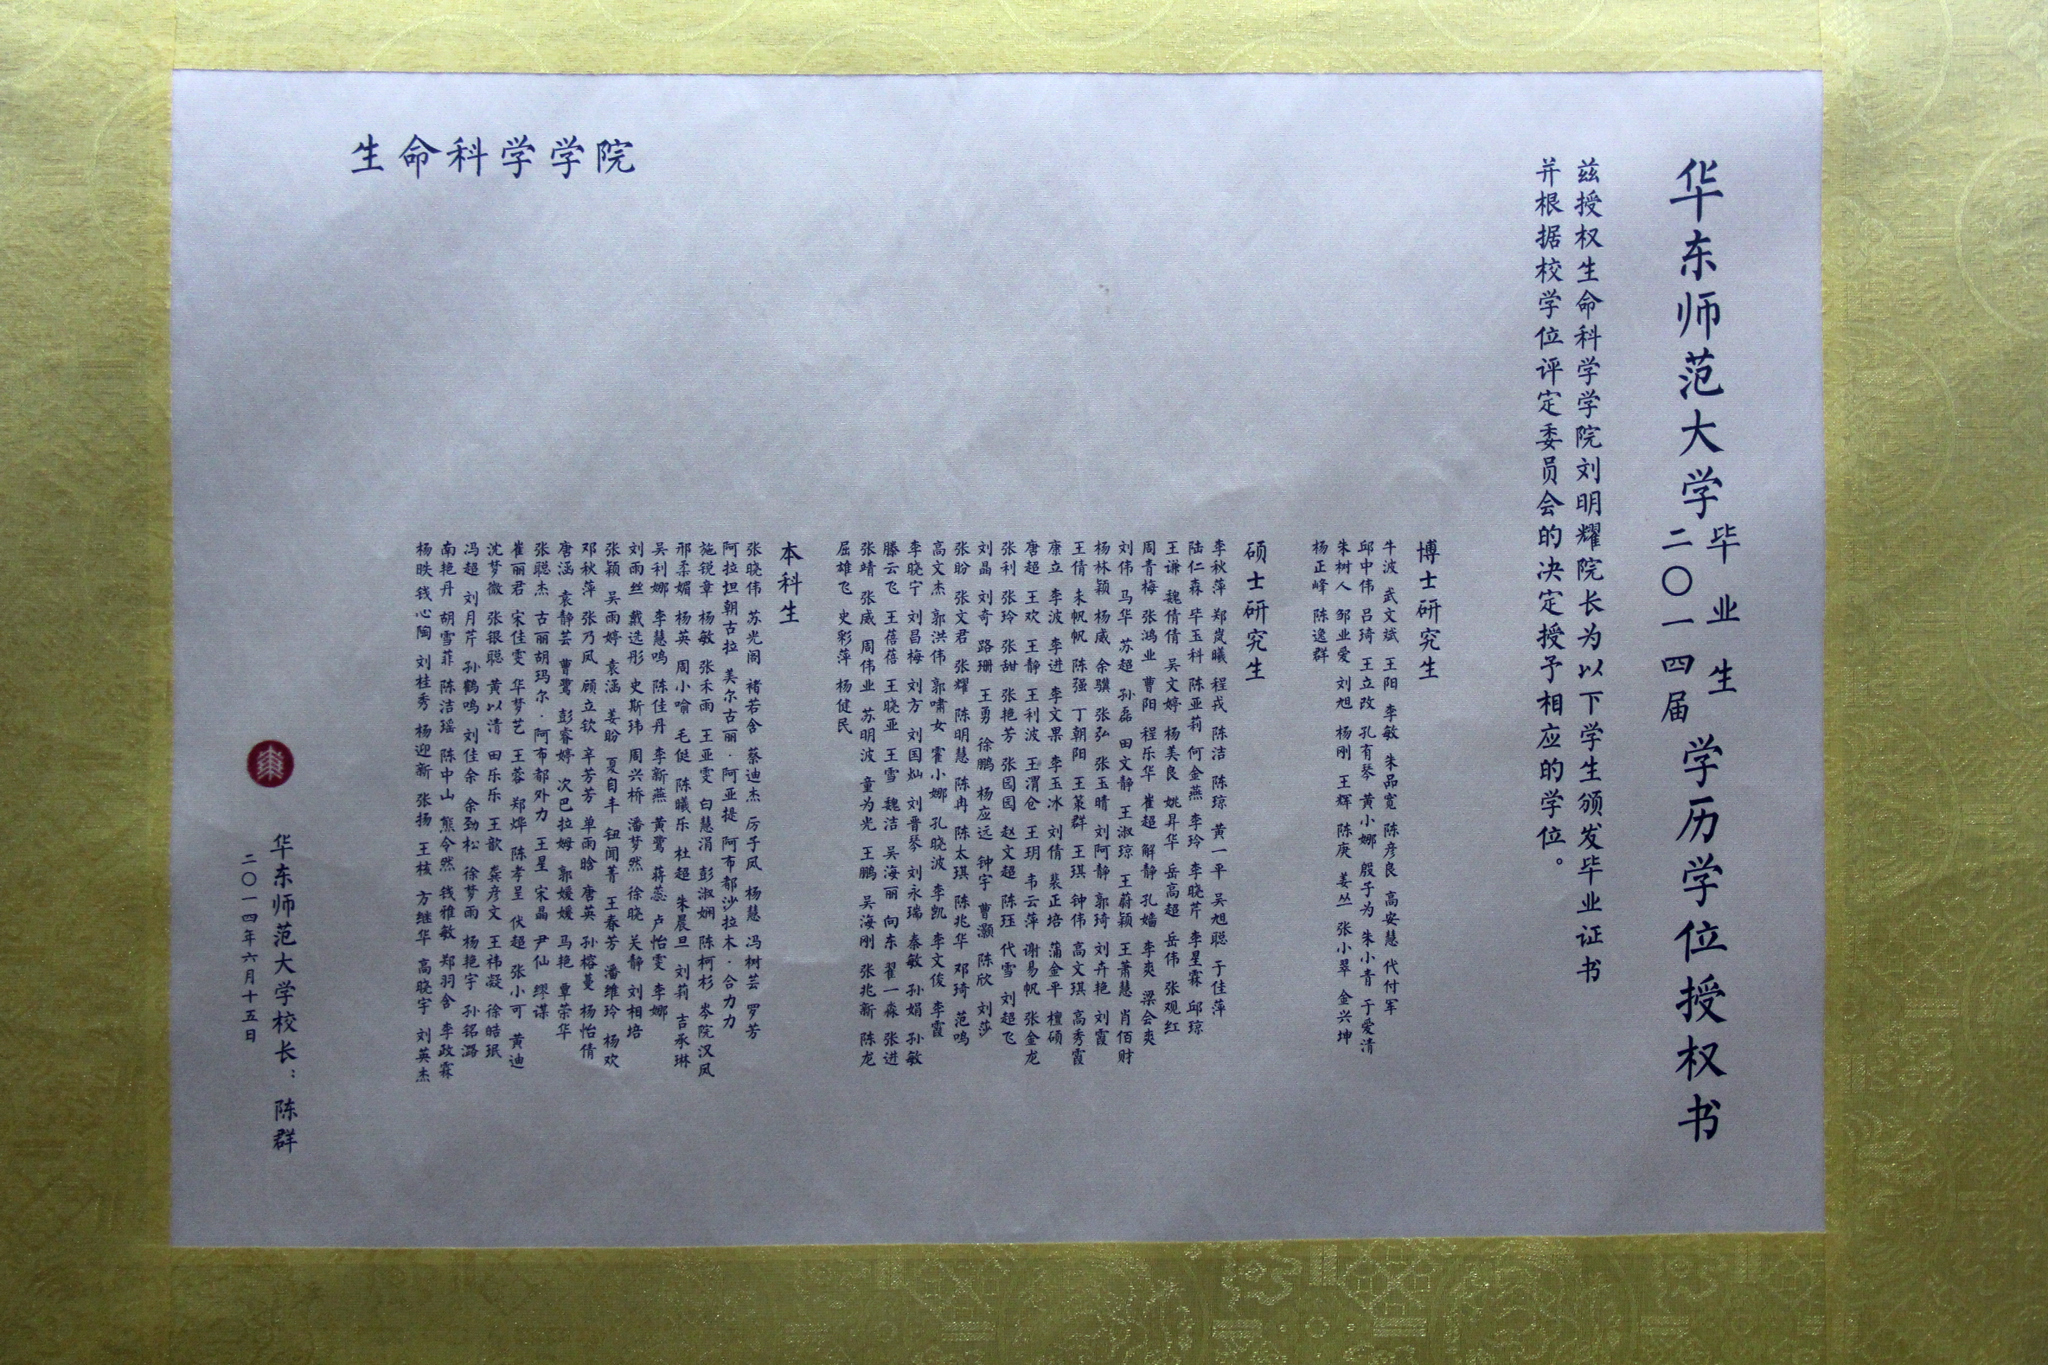 华东师范大学二〇一四届毕业生学历学位授权书
兹授权生命科学学院刘明耀院长为以下学生颁发毕业证书
并根据校学位评定委员会的决定授予相应的学位。
博士研究生
牛波 武文斌 王阳 李敏 朱品宽 陈彦良 高安慧 代付军
邱中伟 吕琦 王立改 孔有琴 黄小娜 殷子为 朱小青 于爱清
朱树人 邹业爱 刘旭 杨刚 王辉 陈庚 姜丛 张小翠 金兴坤
杨正峰 陈逸群
硕士研究生
李秋萍 郑岚曦 程戎 陈洁 陈琼 黄一平 吴旭聪 于佳萍
陆仁森 毕玉科 陈亚莉 何金燕 李玲 李晓芹 李星霖 邱琼
王谦 魏倩倩 吴文婷 杨美良 姚昇华 岳高超 岳伟 张观红
周青梅 张鸿业 曹阳 程乐华 崔超 解静 孔嫱 李爽 梁会爽
刘伟 马华 苏超 孙磊 田文静 王淑琼 王蔚颖 王萧慧 肖佰财
杨林颖 杨威 余骥 张弘 张玉晴 刘阿静 郭琦 刘卉艳 刘霞
王倩 朱帆帆 陈强 丁朝阳 王菉群 王琪 钟伟 高文琪 高秀霞
康立 李波 李进 李文果 李玉冰 刘倩 裴正培 蒲金平 檀硕
唐超 王欢 王静 王利波 王渭仓 王玥 韦云萍 谢易帆 张金龙
张利 张玲 张甜 张艳芳 张园园 赵文超 陈珏 代雪 刘超飞
刘晶 刘奇 路珊 王勇 徐鹏 杨应远 钟宇 曹灏 陈欣 刘莎
张盼 张文君 张耀 陈明慧 陈冉 陈太琪 陈兆华 邓琦 范鸣
高文杰 郭洪伟 郭啸女 霍小娜 孔晓波 李凯 李文俊 李霞
李晓宁 刘昌梅 刘方 刘国灿 刘晋琴 刘永瑞 秦敏 孙娟 孙敏
滕云飞 王蓓蓓 王晓亚 王雪 魏洁 吴海丽 向东 翟一淼 张进
张靖 张威 周伟业 苏明波 童为光 王鹏 吴海刚 张兆新 陈龙
屈雄飞 史彩萍 杨健民
本科生
张晓伟 苏光阁 褚若含 蔡迪杰 厉子风 杨慧 冯树芸 罗芳
阿拉坦朝古拉 美尔古丽·阿亚提 阿布都沙拉木·合力力
施锐章 杨敏 张禾雨 王亚雯 白慧涓 彭淑娴 陈柯杉 岑院汉风
邢柔媚 杨英 周小喻 毛侹 陈曦乐 杜超 朱晨旦 刘莉 吉承琳
吴利娜 李慧鸣 陈佳丹 李新燕 黄鹭 蒋蕊 卢怡雯 李娜
刘雨丝 戴选彤 史斯玮 周兴桥 潘梦然 徐晓 关静 刘相培
张颖 吴雨婷 袁涵 姜盼 夏自丰 钮闻菁 王春芳 潘维玲 杨欢
邓秋萍 张乃凤 顾立钦 辛芳芳 单雨晗 唐英 孙榕蔓 杨怡倩
唐涵 袁静芸 曹鹭 彭睿婷 次巴拉姆 郭媛媛 马艳 覃荣华
张聪杰 古丽胡玛尔·阿布都外力 王星 宋晶 尹仙 缪谋
崔丽君 宋佳雯 华梦艺 王蓉 郑烨 陈孝呈 伏超 张小可 黄迪
沈梦微 张银聪 黄以清 田乐乐 王歆 龚彦文 王祎凝 徐皓珉
冯超 刘月芹 孙鹤鸣 刘佳余 余劲松 徐梦雨 杨艳宇 孙铭潞
南艳丹 胡雪菲 陈洁瑶 陈中山 熊令然 钱雅敏 郑羽含 李政霖
杨昳 钱心陶 刘桂秀 杨迎新 张扬 王核 方继华 高晓宇 刘英杰
华东师范大学校长：陈群
二〇一四年六月十五日
生命科学学院